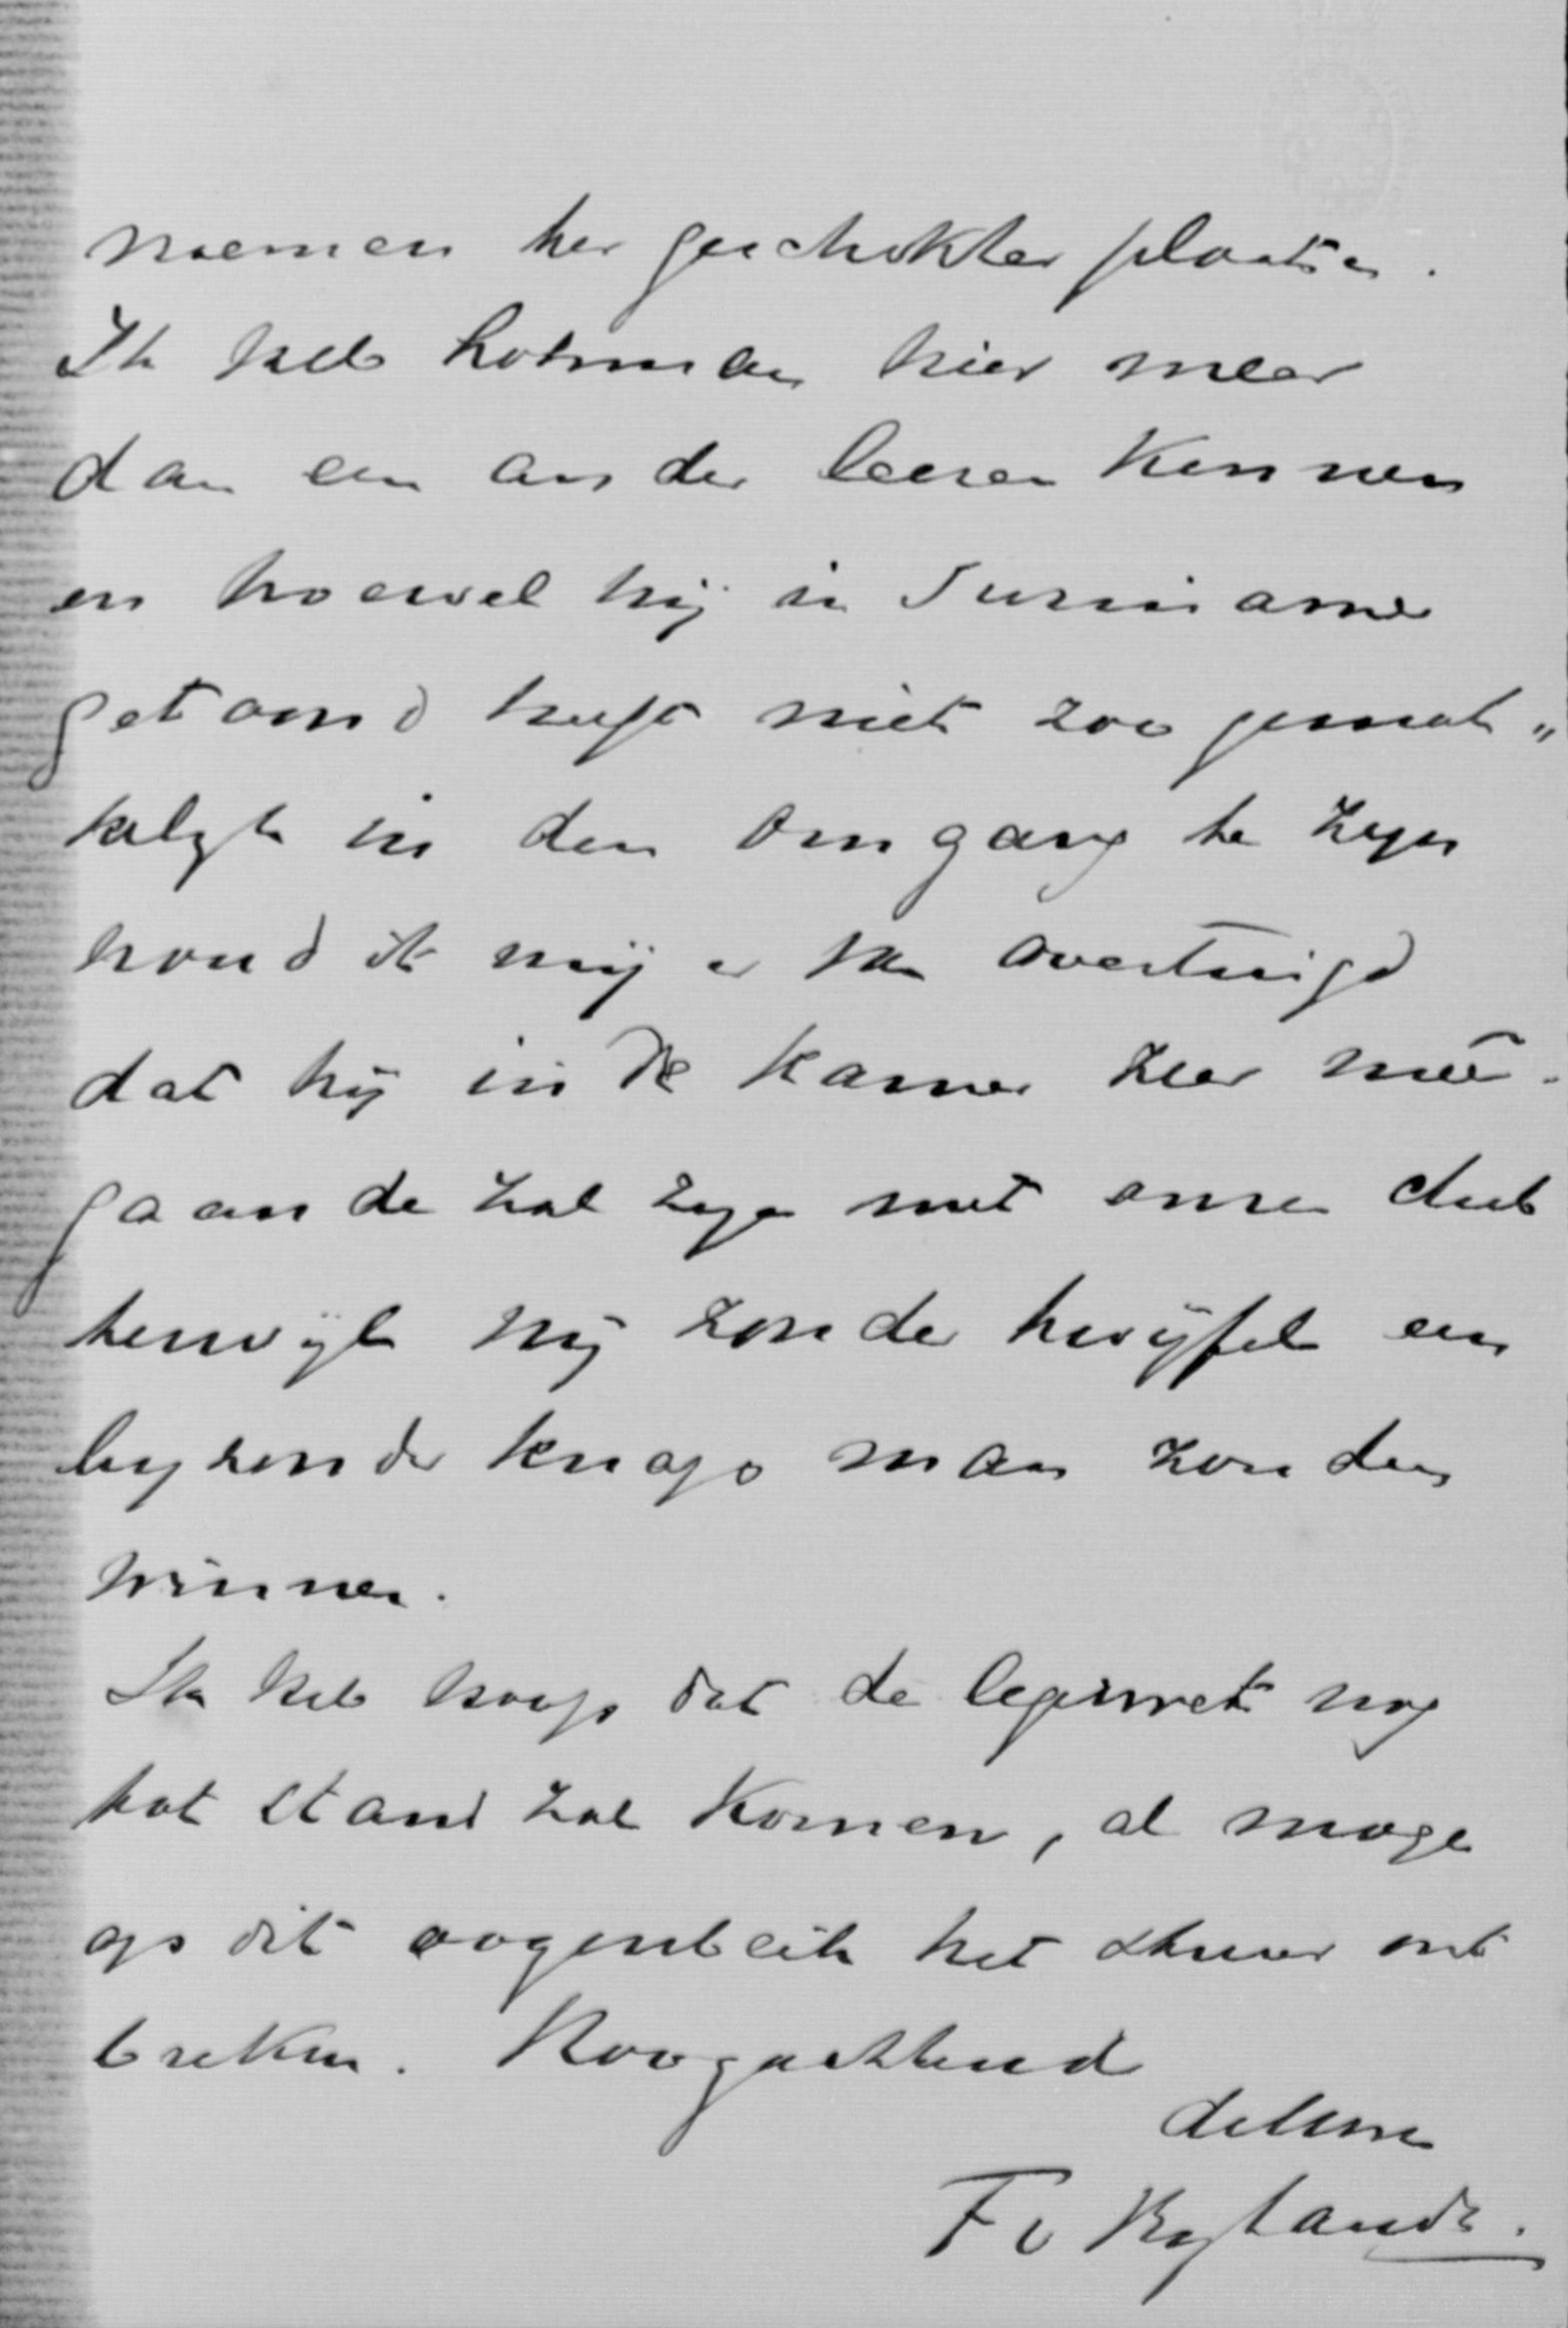 noemen ter geschikter plaatse.
Ik heb Lohman hier meer
dan een ander leeren kennen
en hoewel hij in Suriname
getoond heeft niet zoo gemak„
kelijk in den omgang te zijn
houd ik mij er van overtuigd
dat hij in de kamer zeer meê-
gaande zal zijn met onze club
terwijl wij zonder twijfel een
byzonder knap man zouden
winnen.
Ik heb hoop dat de legerwet nog
tot stand zal komen, al moge
op dit oogenblik het stuur ont
breken. Hoogachtend
F v Bylandt.